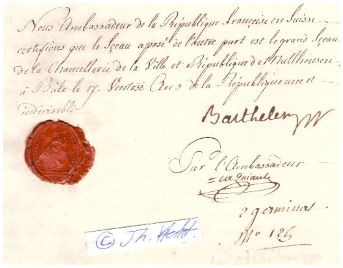 Nous Ambassadeur de la République française en Suisse
certifions que le sçeau aposé de l'autre part est le grand Sçeau
de la Chancellerie de la Ville et République de Mulhausen
à Bâle le 17 Ventôse An de la République une et
indivisible
Barthelemy
Par l'Ambassadeur
germinal
No 125
© Th.